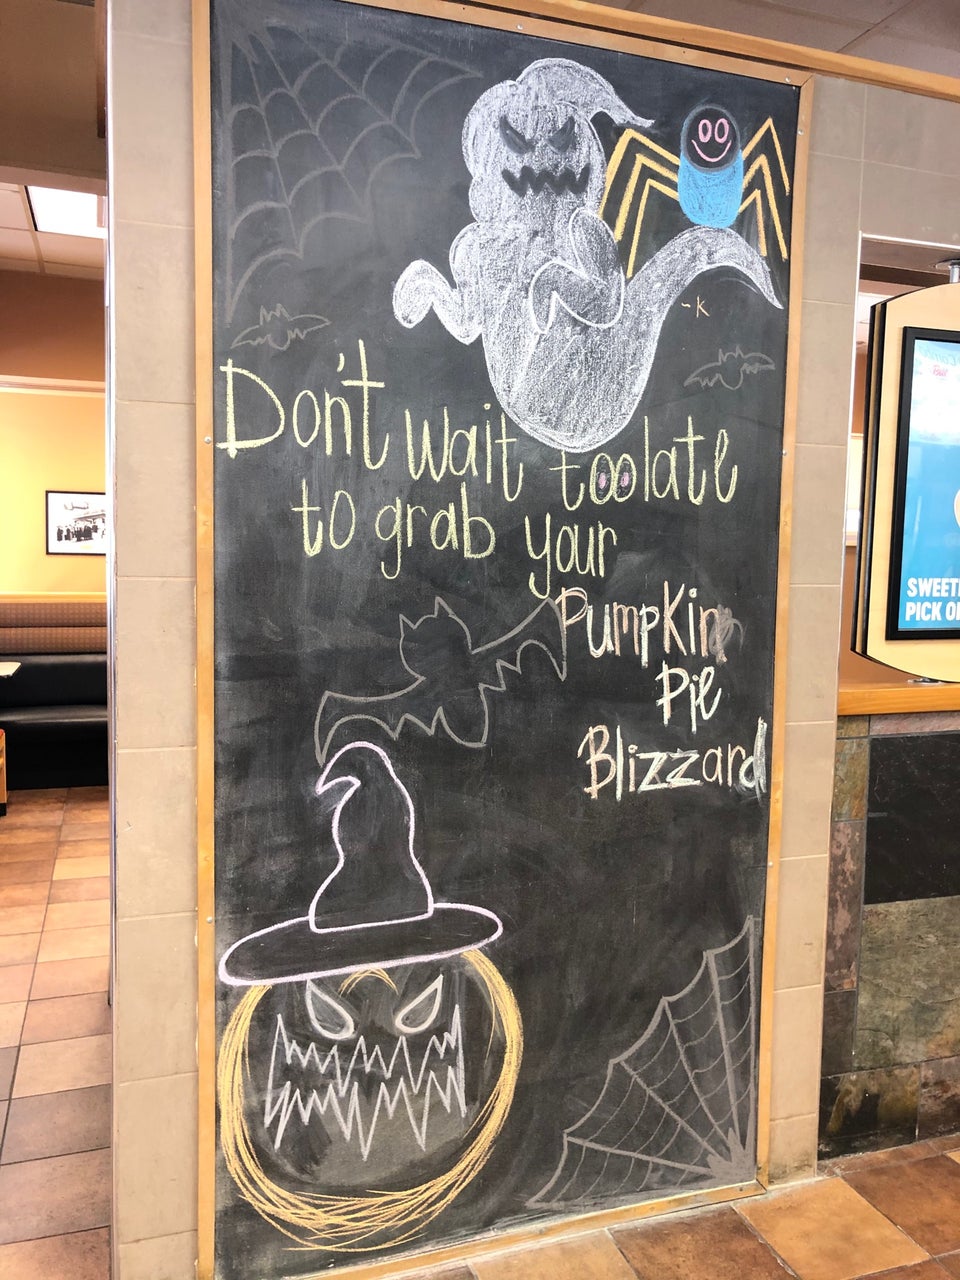 ~K
Don't wait too late
to grab your
Pumpkin
Pie
Blizzard
SWEET
PICK O